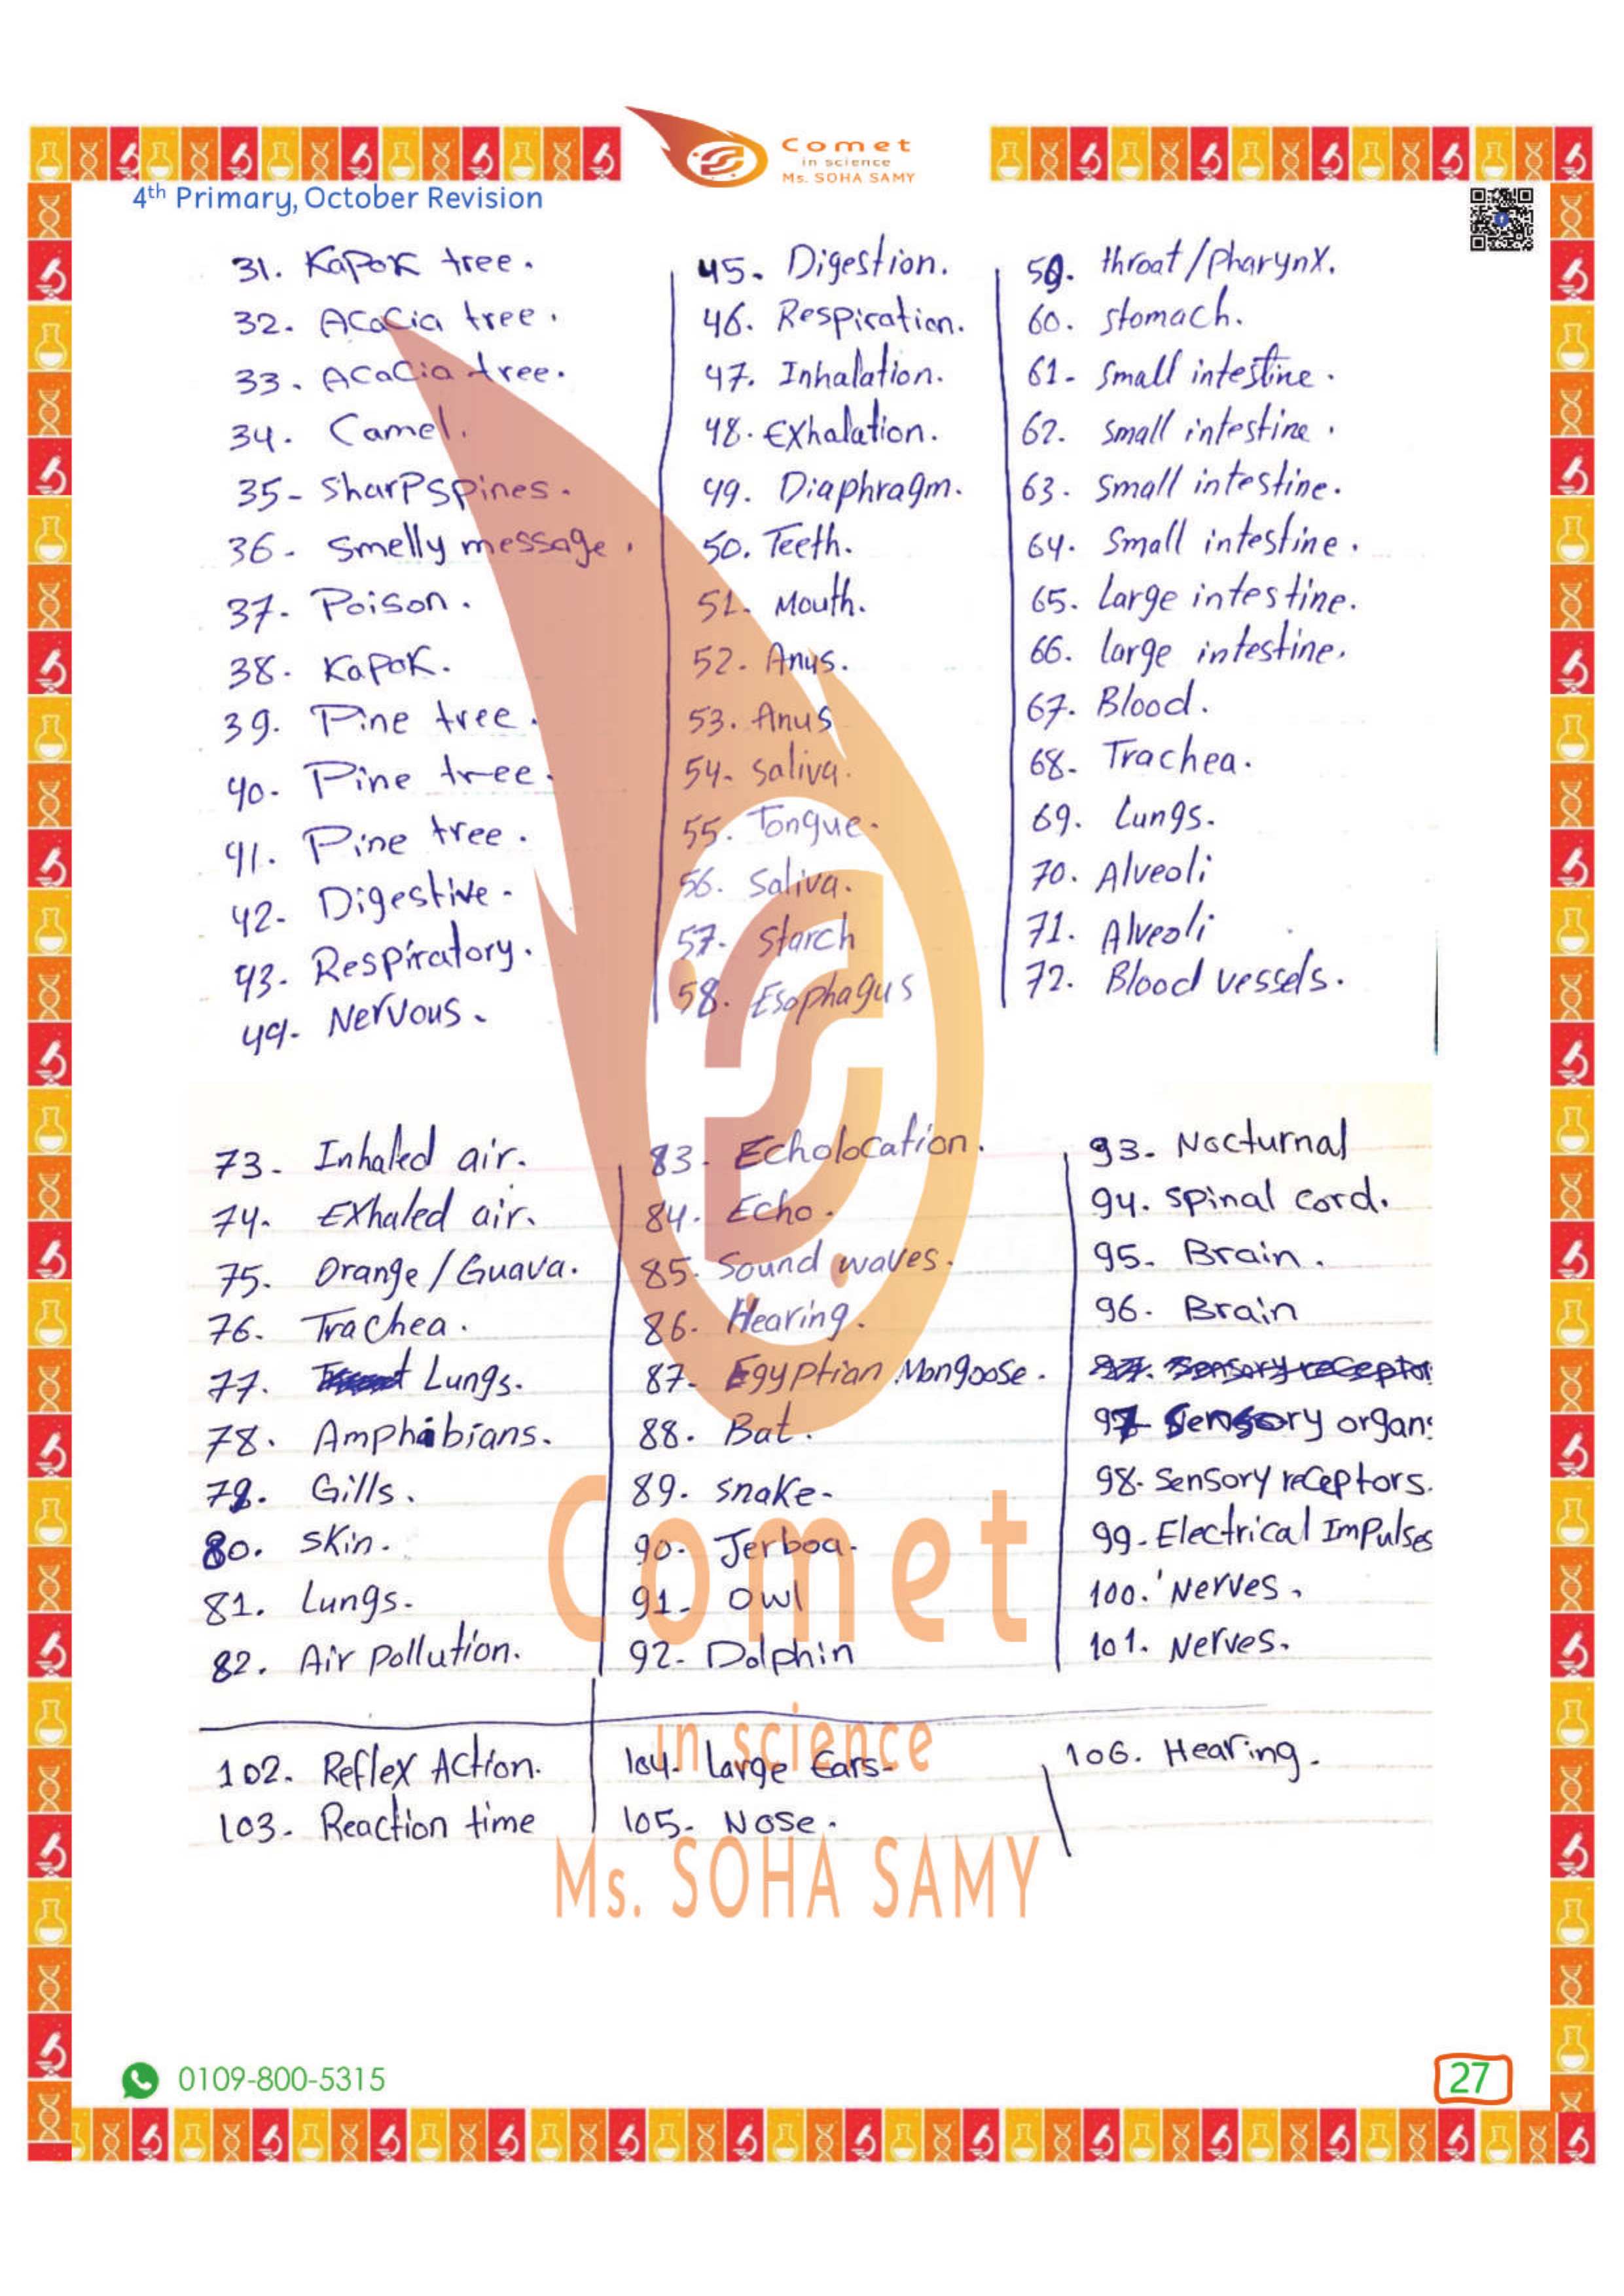 Comet
in science
Ms. SOHA SAMY
4th Primary, October Revision
31. Kapok tree.
32. Acacia tree.
33. Acacia tree.
34. Camel.
35- Sharp spines.
36- Smelly message.
37- Poison.
38. Kapok.
39. Pine tree.
40- Pine tree.
41. Pine tree.
42- Digestive.
43- Respiratory.
44- Nervous.
45. Digestion.
46. Respiration.
47. Inhalation.
48. Exhalation.
49. Diaphragm.
50. Teeth.
51. Mouth.
52. Anus.
53. Anus
54- saliva.
55. Tongue.
56. Saliva.
57. Starch
58. Esophagus
59. throat/pharynx.
60. stomach.
61- Small intestine.
62. small intestine.
63. small intestine.
64. Small intestine.
65. Large intestine.
66. large intestine.
67. Blood.
68- Trachea.
69. Lungs.
70. Alveoli
71. Alveoli
72. Blood vessels.
73- Inhaled air.
74. Exhaled air.
75. Orange/Guava.
76. Trachea.
77. Lungs.
78. Amphibians.
79. Gills.
80. skin.
81. Lungs.
82. Air pollution.
83- Echolocation.
84. Echo.
85. Sound waves.
86. Hearing.
87- Egyptian Mongoose.
88. Bat.
89. snake.
90- Jerboa.
91- Owl
92- Dolphin
93- Nocturnal
94. spinal cord.
95- Brain.
96- Brain
97. Sensory receptor
97 Sensory organs
98. Sensory receptors.
99. Electrical Impulses
100. Nerves.
101. Nerves.
102. Reflex Action.
103- Reaction time
104. Large Ears-
105- Nose.
106. Hearing.
Comet
in science
Ms. SOHA SAMY
0109-800-5315
27